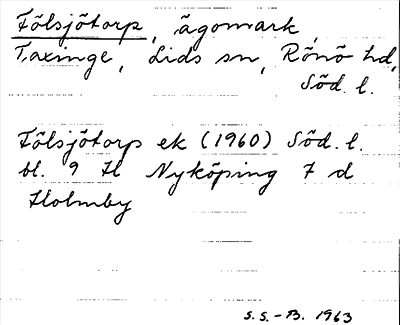 Fölsjötorp, ägomark,
Taxinge, Lids sn, Rönö hd,
Söd. l.
Fölsjötorp ek (1960) Söd. l.
bl. 9 H Nyköping 7 d
Holmby
S.S.-B. 1963